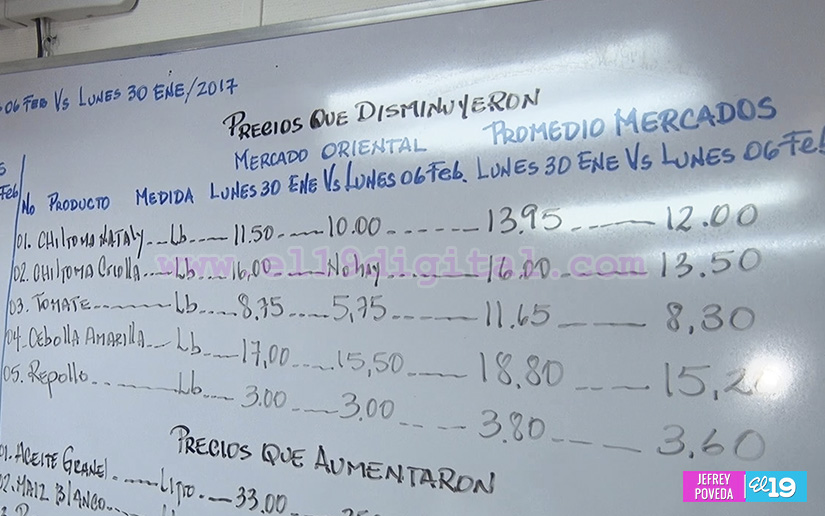 06 Feb Vs LUNES 30 ENE/2017
PRECIOS QUE DISMINUYERON
MERCADO ORIENTAL PROMEDIO MERCADOS
Feb No PRODUCTO MEDIDA LUNES 30 ENE Vs LUNES 06 Feb. LUNES 30 ENE Vs LUNES 06 Feb
01. CHILTOMA NATALY Lb 11.50 10.00 13.95 12.00
02. CHILTOMA CRIOLLA Lb 16,00 No hay 16.00 13.50
www.el19digital.com
03. TOMATE Lb 8.75 5,75 11.65 8,30
04. CEBOLLA AMARILLA Lb 17,00 15,50 18.80
05. REPOLLO Lb 3.00 3.00 3.80 3.60
PRECIOS QUE AUMENTARON
01. ACEITE GRANEL Litro 33.00
02. MAIZ BLANCO
JEFREY
POVEDA
el 19